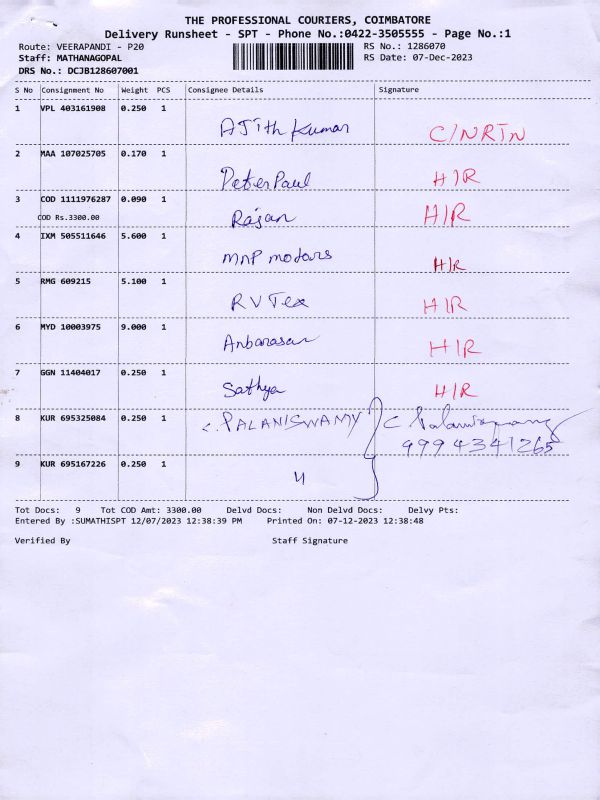 THE PROFESSIONAL COURIERS, COIMBATORE
Delivery Runsheet - SPT - Phone No.:0422-3505555 - Page No.:1
Route: VEERAPANDI - P20 RS No.: 1286070
Staff: MATHANAGOPAL RS Date: 07-Dec-2023
DRS No.: DCJB128607001
S No Consignment No Weight PCS Consignee Details Signature
1 VPL 403161908 0.250 1 AJith Kumar C/NRTN
2 MAA 107025705 0.170 1 Peter Paul H/R
3 COD 1111976287 0.090 1 Rajan H/R
COD Rs.3300.00
4 IXM 505511646 5.600 1 MNP motors H/R
5 RMG 609215 5.100 1 RV Tex H/R
6 MYD 10003975 9.000 1 Anbarasan H/R
7 GGN 11404017 0.250 1 Sathya H/R
8 KUR 695325084 0.250 1 C. PALANISWAMY C Palaniswamy
9994341265
9 KUR 695167226 0.250 1 "
Tot Docs: 9 Tot COD Amt: 3300.00 Delvd Docs: Non Delvd Docs: Delvy Pts:
Entered By :SUMATHISPT 12/07/2023 12:38:39 PM Printed On: 07-12-2023 12:38:48
Verified By Staff Signature